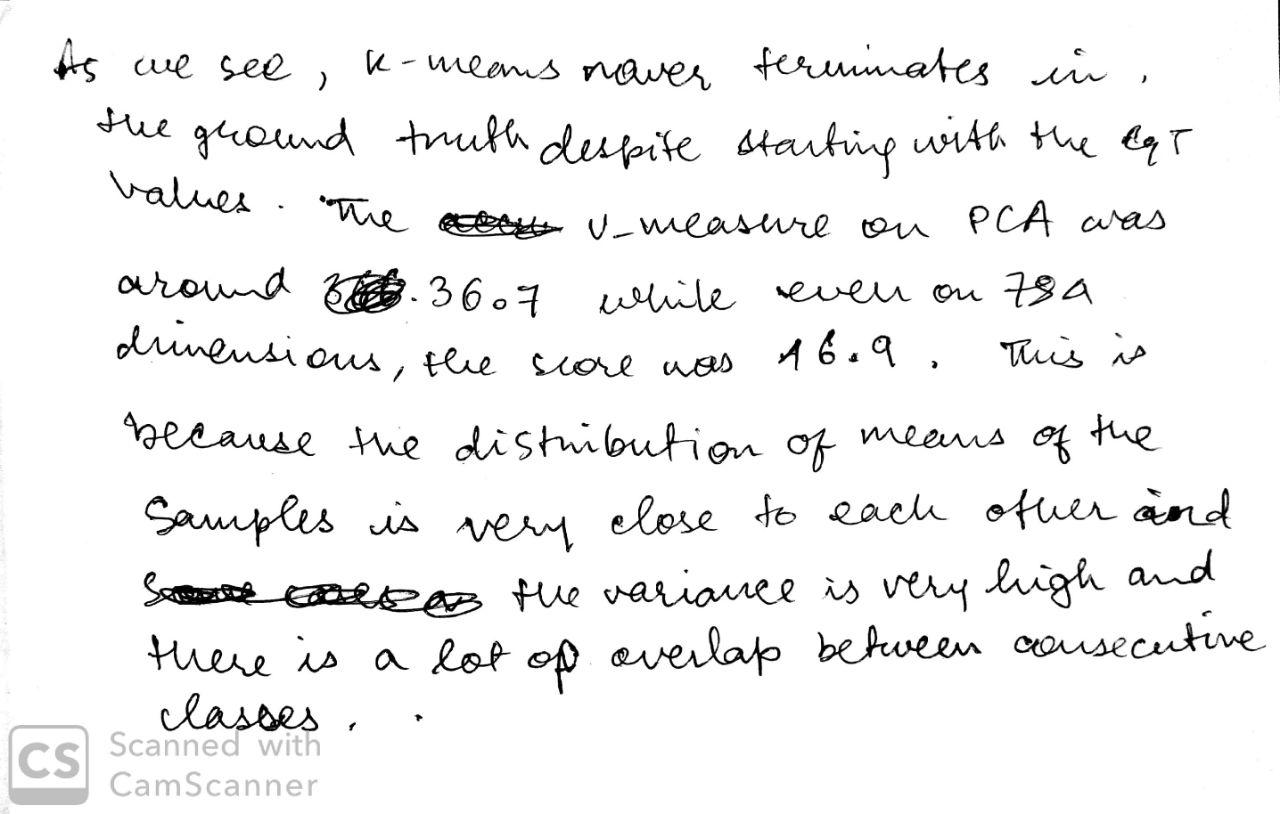 As we see, k-means never terminates in,
the ground truth despite starting with the
values. The v-measure on PCA was
around .36.7 while even on
dimensions, the score was 16.9. This is
because the distribution of means of the
Samples is very close to each other and
the variance is very high and
there is a lot of overlap between consecutive
classes..
CS Scanned with
CamScanner